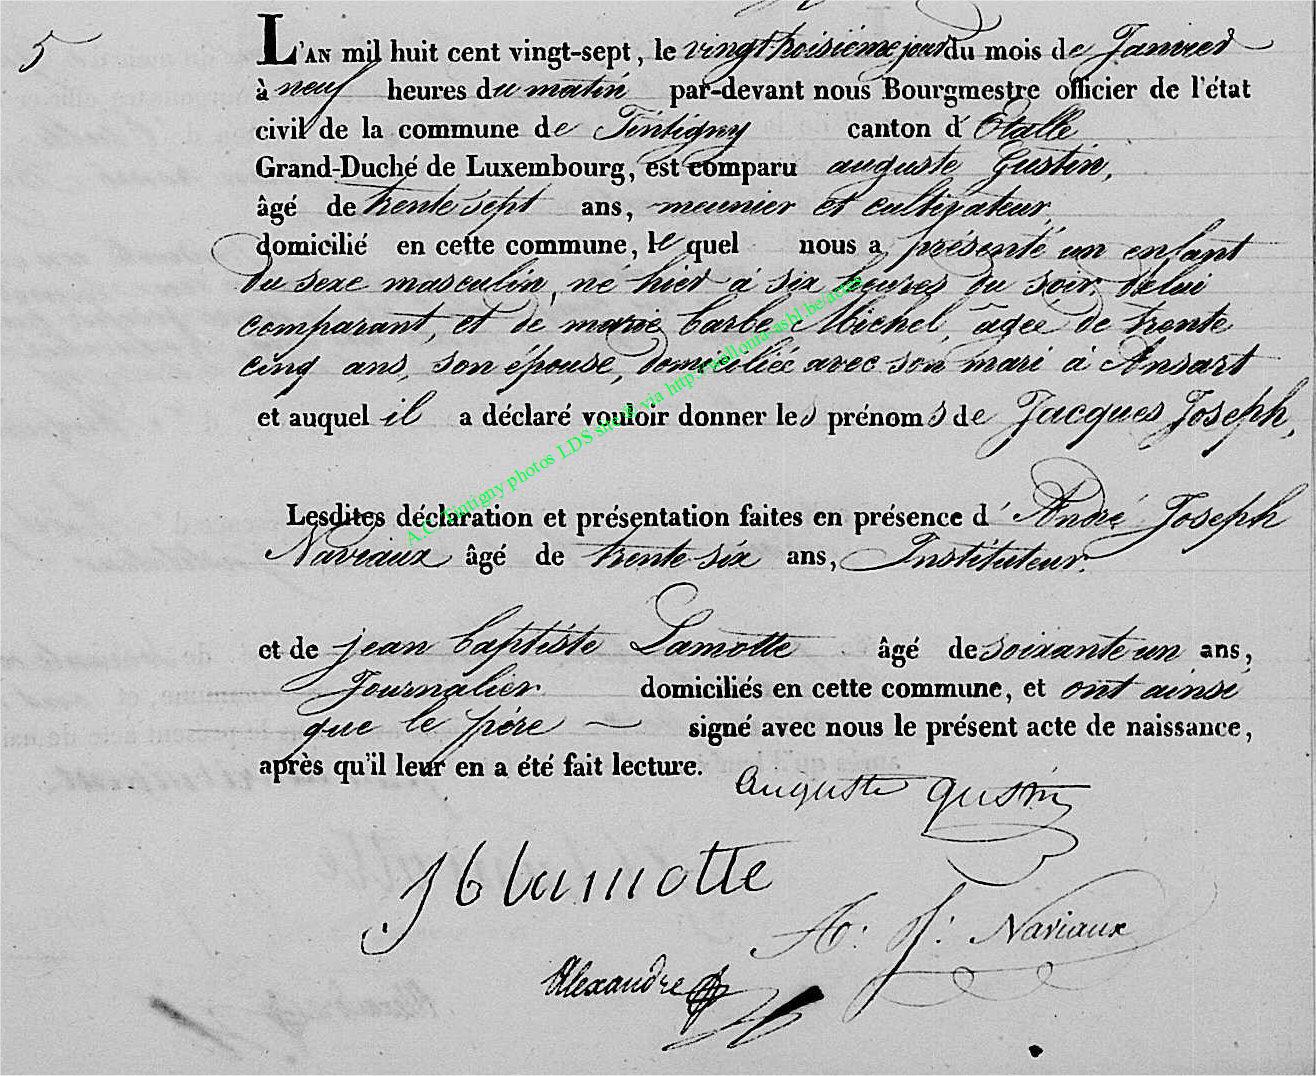 5
L'AN mil huit cent vingt-sept, le vingt troisième jour du mois de Janvier
à neuf heures du matin par-devant nous Bourgmestre officier de l'état
civil de la commune de Tintigny canton d'Etalle
Grand-Duché de Luxembourg, est comparu auguste Gustin,
âgé de trente sept ans, meunier et cultivateur,
domicilié en cette commune, le quel nous a présenté un enfant
du sexe masculin, né hier à six heures du soir, de lui
comparant, et de marie barbe Michel, âgée de trente
cinq ans, son épouse, domiciliée avec son mari à Ansart
et auquel il a déclaré vouloir donner les prénoms de Jacques Joseph,
Lesdites déclaration et présentation faites en présence d'André Joseph
Naviaux âgé de trente-six ans, Instituteur.
et de jean baptiste Lamotte âgé de soixante un ans,
Journalier domiciliés en cette commune, et ont ainsi
que le père — signé avec nous le présent acte de naissance,
après qu'il leur en a été fait lecture.
Auguste gustin
J b lamotte
A. J. Naviaux
Alexandre
A.C. Tintigny photos LDS site via http://wallonia-asbl.be/actes